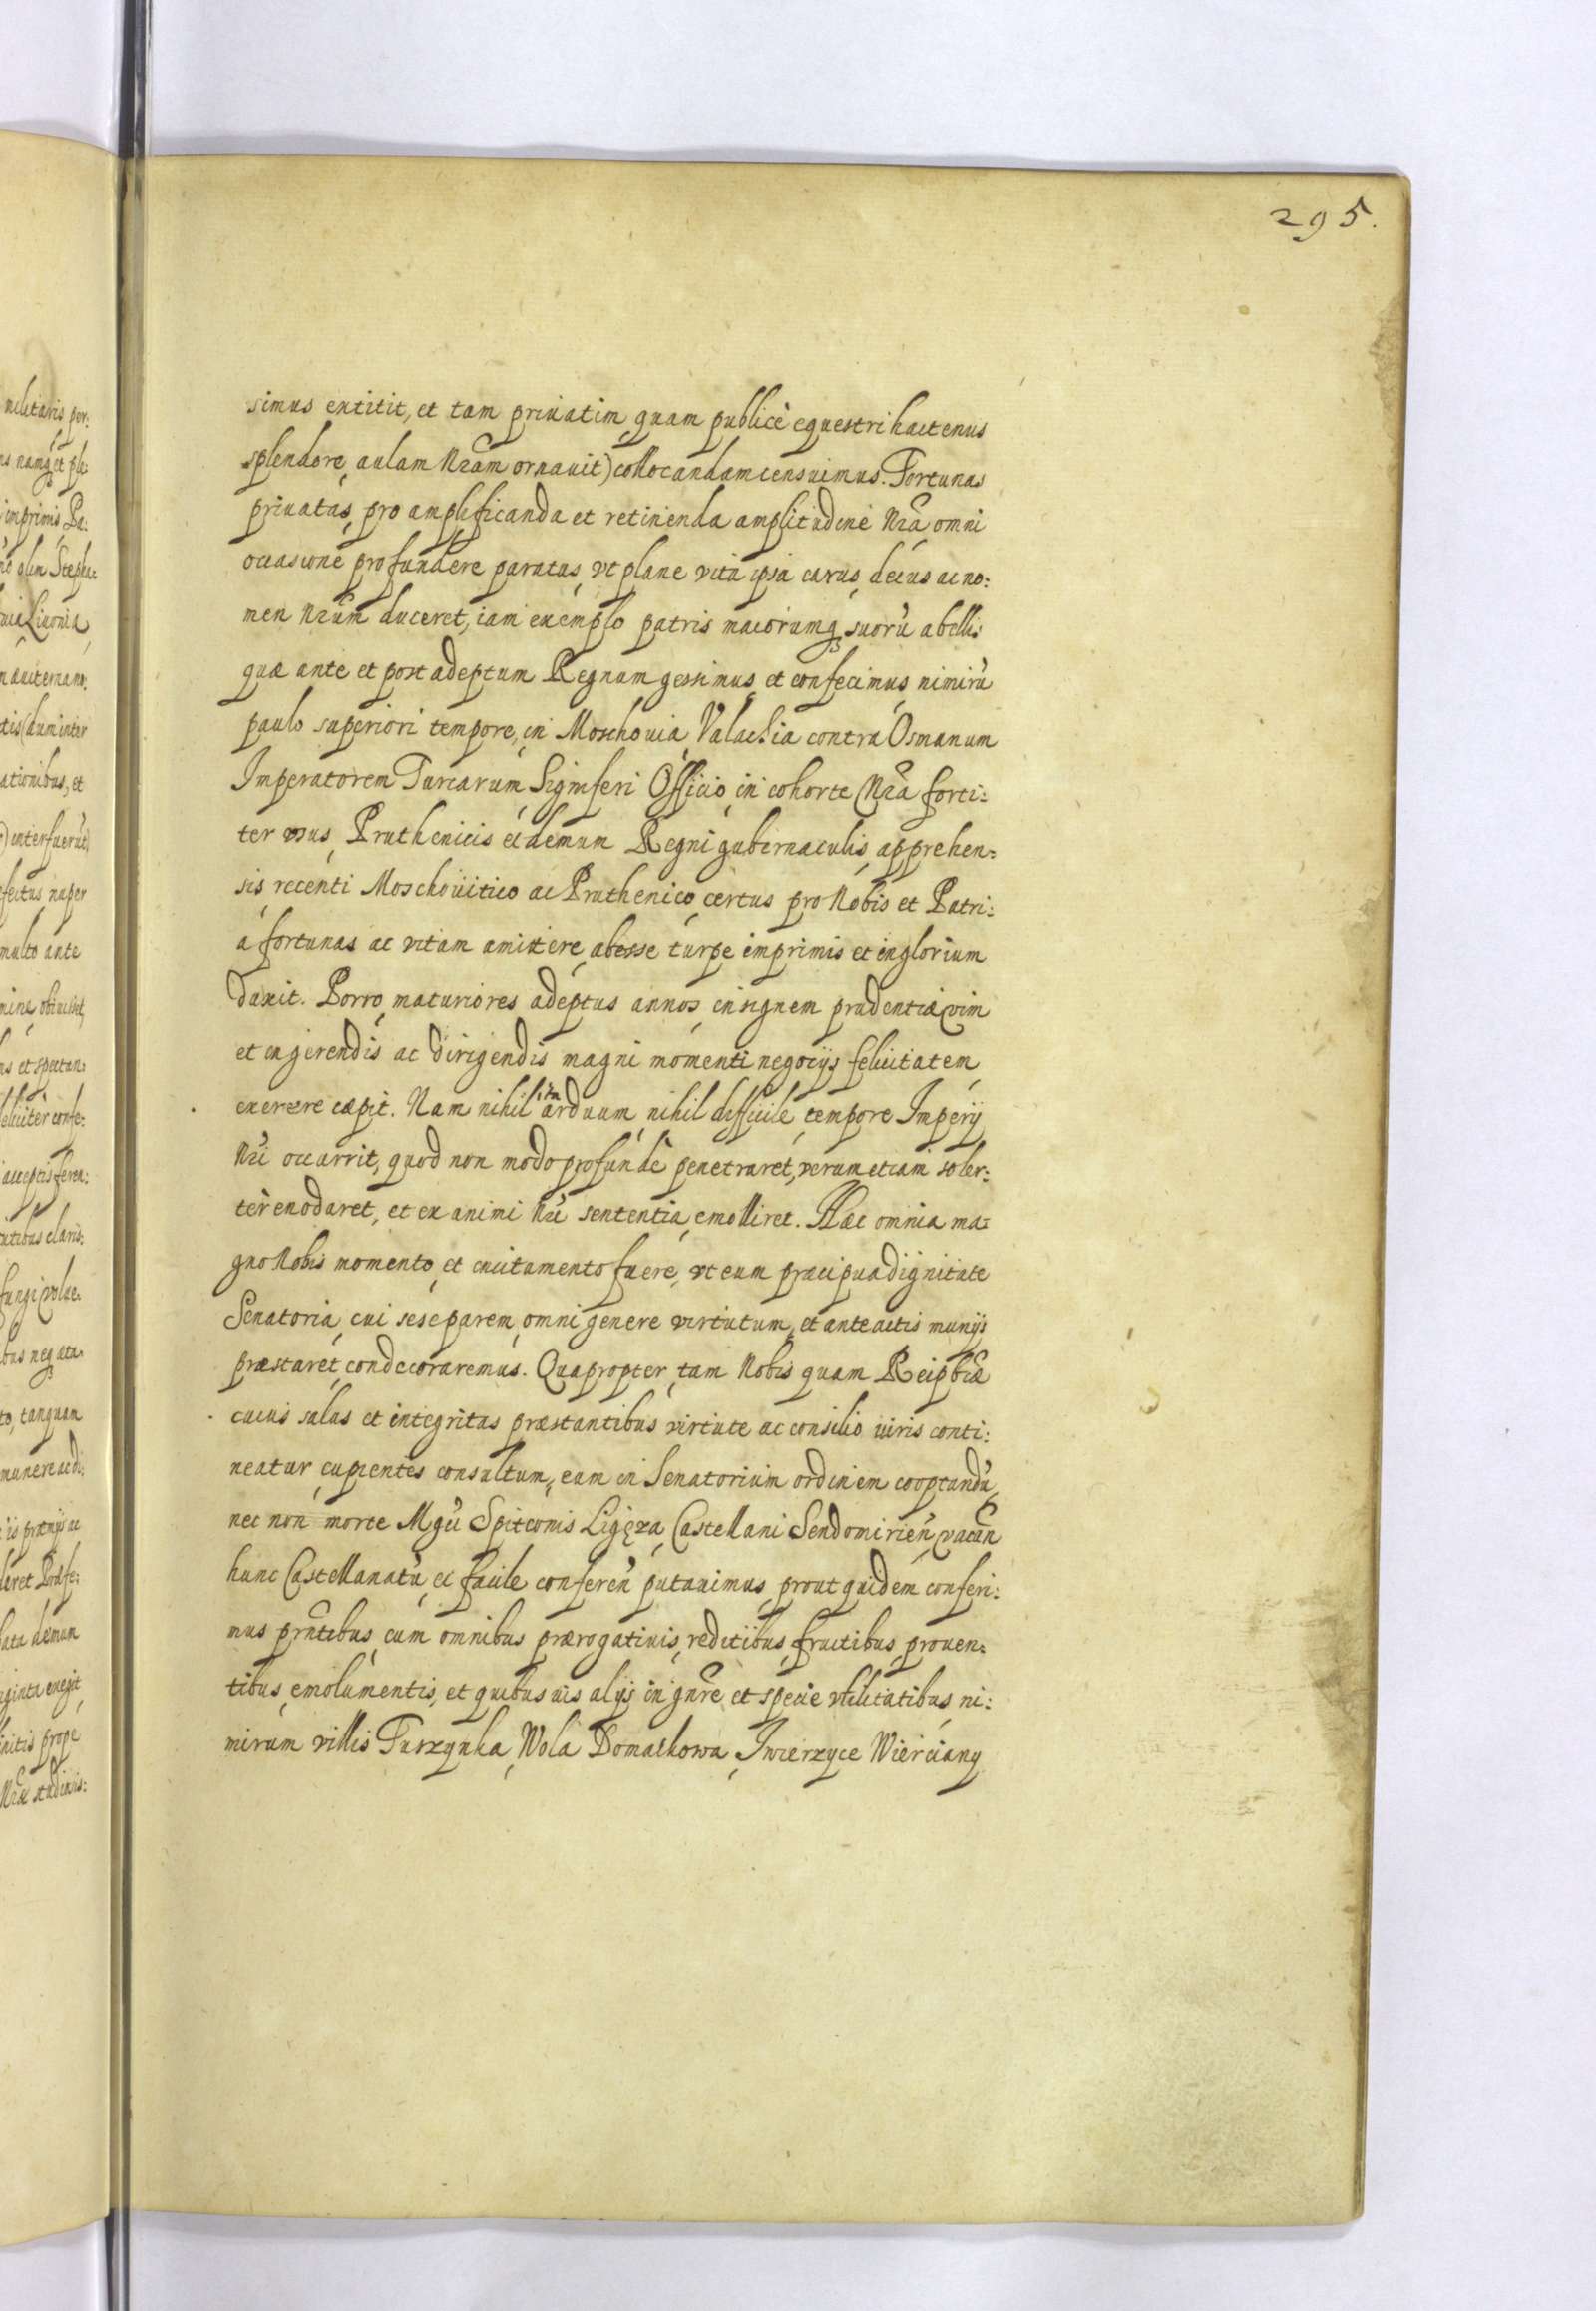 295.
simus extitit, et tam priuatim quam publicè equestri hactenus
splendore, aulam Nrãm ornauit) collocandam censuimus. Fortunas
priuatas, pro amplificanda et retinenda amplitudine Nrã omni
occasione profundere paratus, vt plane vita ipsa carus, decus ac no:
men Nrũm duceret, iam exemplo patris maiorumq suorũ a bellis
quæ ante et post adeptum Regnum gessimus et confecimus, nimirũ
paulo superiori tempore, in Moschouia, Valachia contra Osmanum
Imperatorem Turcarum Signiferi Officio, in cohorte Nrã forti:
ter usus, Pruthenicis et demum Regni gubernaculis, apprehen:
sis, recenti Moschouitico ac Pruthenico, certus pro Nobis et Patri:
a fortunas ac vitam amittere, abesse turpe imprimis et inglorium
duxit. Porro, maturiores adeptus annos, insignem prudentiæ vim
et in gerendis ac dirigendis magni momenti negocijs felicitatem,
exerere cæpit. Nam nihil ita arduum, nihil difficile, tempore Imperij
Nrĩ occurrit, quod non modo profundè penetraret, verum etiam soler:
ter enodaret, et ex animi Nrĩ sententia, emolliret. Hæc omnia ma:
gno Nobis momento, et incitamento fuere, vt eum præcipua dignitate
Senatoria, cui sese parem, omni genere virtutum, et ante actis munijs
præstaret, condecoraremus. Quapropter, tam Nobis quam Reipblcæ
cuius salus et integritas præstantibus virtute ac consilio uiris conti:
neatur, cupientes consultum, eum in Senatorium ordinem cooptandũ,
nec non morte Mgci Spitconis Ligęza, Castellani Sendomirień, vacań
hunc Castellanatũ, ei facile confereń putauimus, prout quidem conferi:
mus prñtibus, cum omnibus prærogatiuis, reditibus, fructibus, prouen:
tibus, emolumentis, et quibus uis alijs in gñre et specie vtilitatibus, ni:
mirum villis Turzynka, Wola Domatkowa, Jwierzyce Wierciany